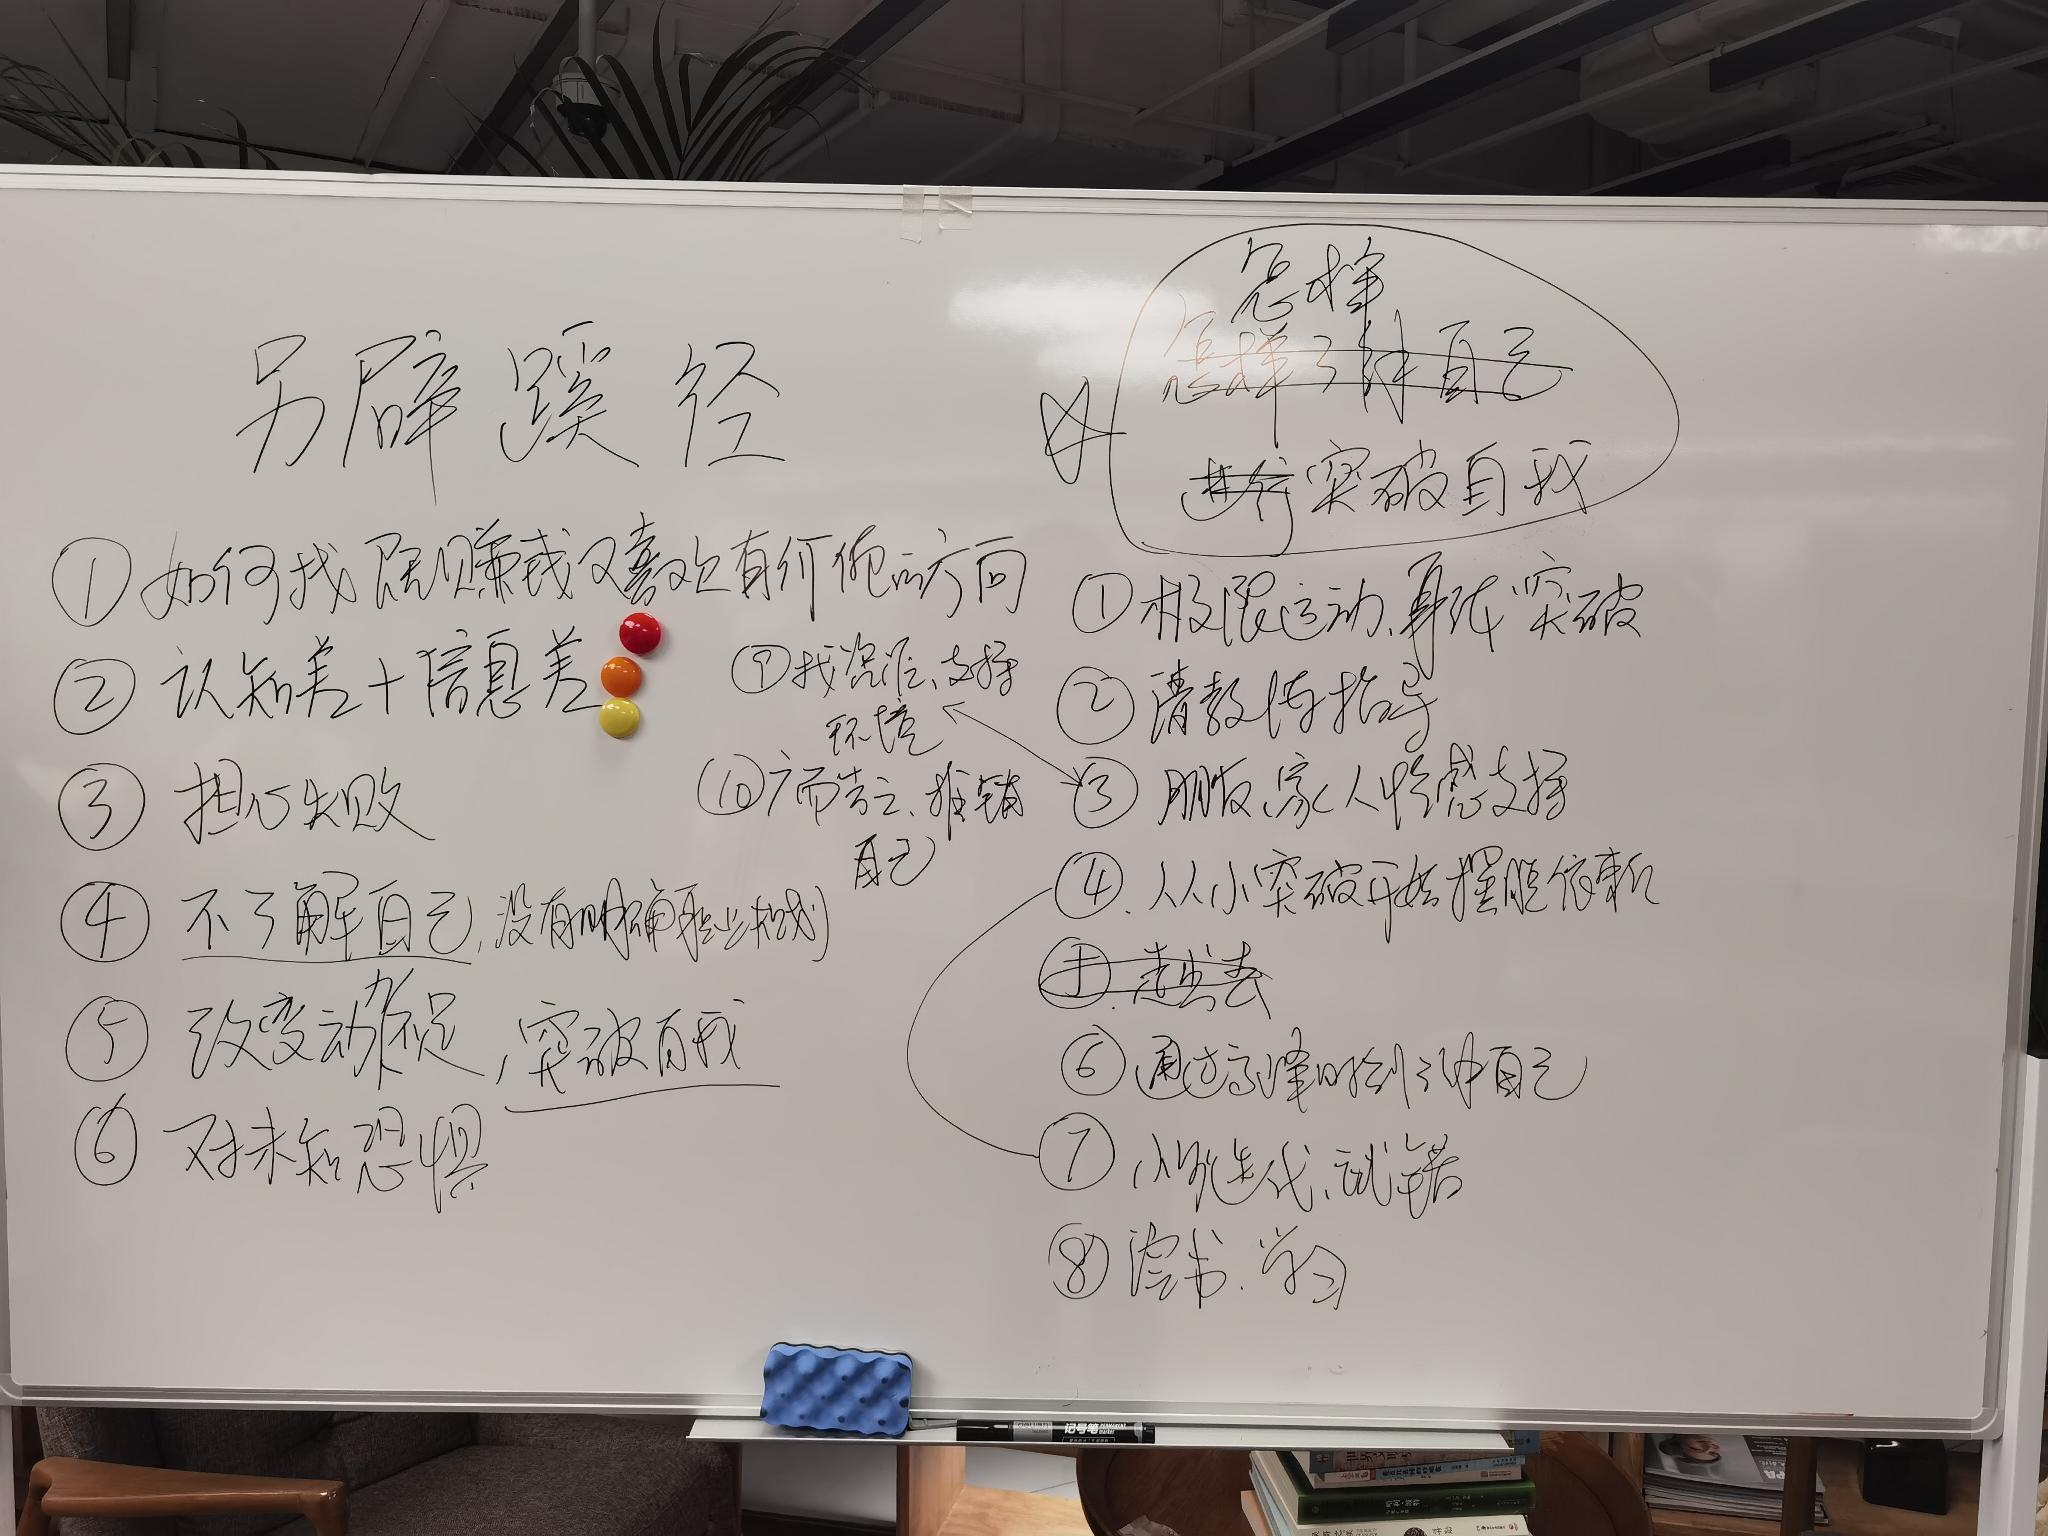 另辟蹊径
①如何找既赚钱又喜欢有价值的方向
②认知差+信息差
③担心失败
④不了解自己,没有明确职业规划
⑤改变动力不足,突破自我
⑥对未知恐惧
怎样
怎样了解自己
进行突破自我
①极限运动、身体突破
②请教 指导
③朋友、家人情感支持
④.从小突破开始摆脱依赖
⑤.走出去
⑥通过高峰时刻了解自己
⑦小步迭代、试错
⑧读书.学习
⑨找资源、支持
环境
⑩广而告之、推销
自己
记号笔 PERMANENT
marker